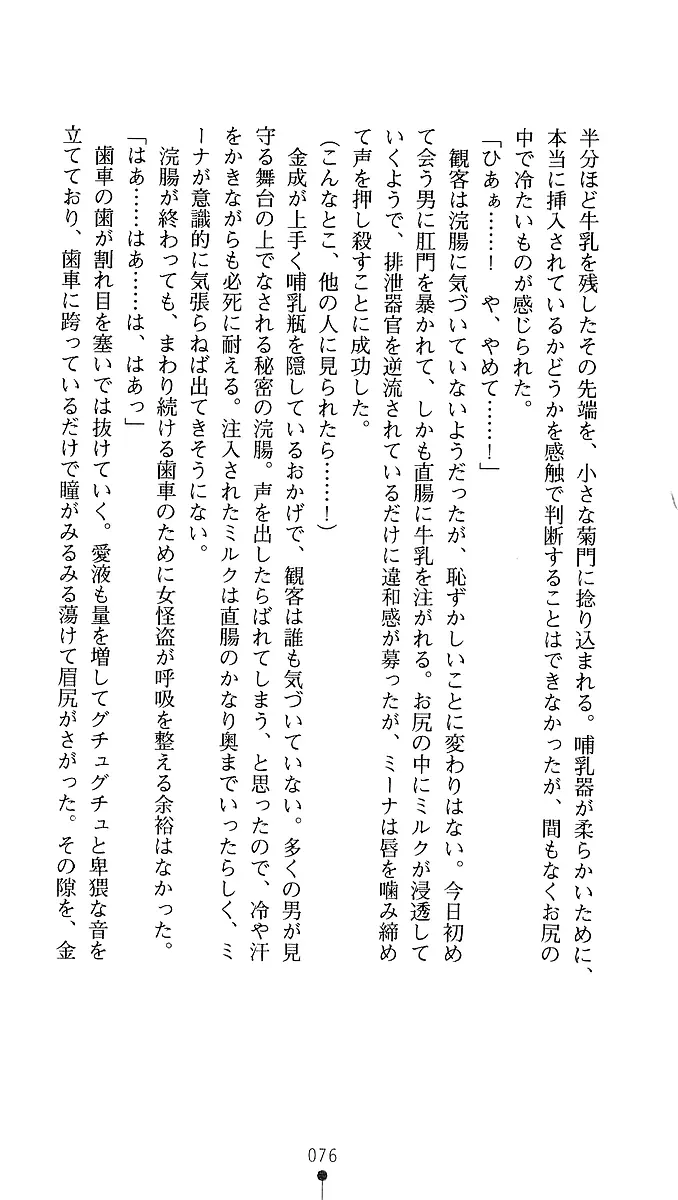 半分ほど牛乳を残したその先端を、小さな菊門に捻り込まれる。哺乳器が柔らかいために、
本当に挿入されているかどうかを感触で判断することはできなかったが、間もなくお尻の
中で冷たいものが感じられた。
「ひあぁ……！　や、やめて……！」
　観客は浣腸に気づいていないようだったが、恥ずかしいことに変わりはない。今日初め
て会う男に肛門を暴かれて、しかも直腸に牛乳を注がれる。お尻の中にミルクが浸透して
いくようで、排泄器官を逆流されているだけに違和感が募ったが、ミーナは唇を噛み締め
て声を押し殺すことに成功した。
（こんなとこ、他の人に見られたら……！）
　金成が上手く哺乳瓶を隠しているおかげで、観客は誰も気づいていない。多くの男が見
守る舞台の上でなされる秘密の浣腸。声を出したらばれてしまう、と思ったので、冷や汗
をかきながらも必死に耐える。注入されたミルクは直腸のかなり奥までいったらしく、ミ
ーナが意識的に気張らねば出てきそうにない。
　浣腸が終わっても、まわり続ける歯車のために女怪盗が呼吸を整える余裕はなかった。
「はあ……はあ……は、はあっ」
　歯車の歯が割れ目を塞いでは抜けていく。愛液も量を増してグチュグチュと卑猥な音を
立てており、歯車に跨っているだけで瞳がみるみる蕩けて眉尻がさがった。その隙を、金
076